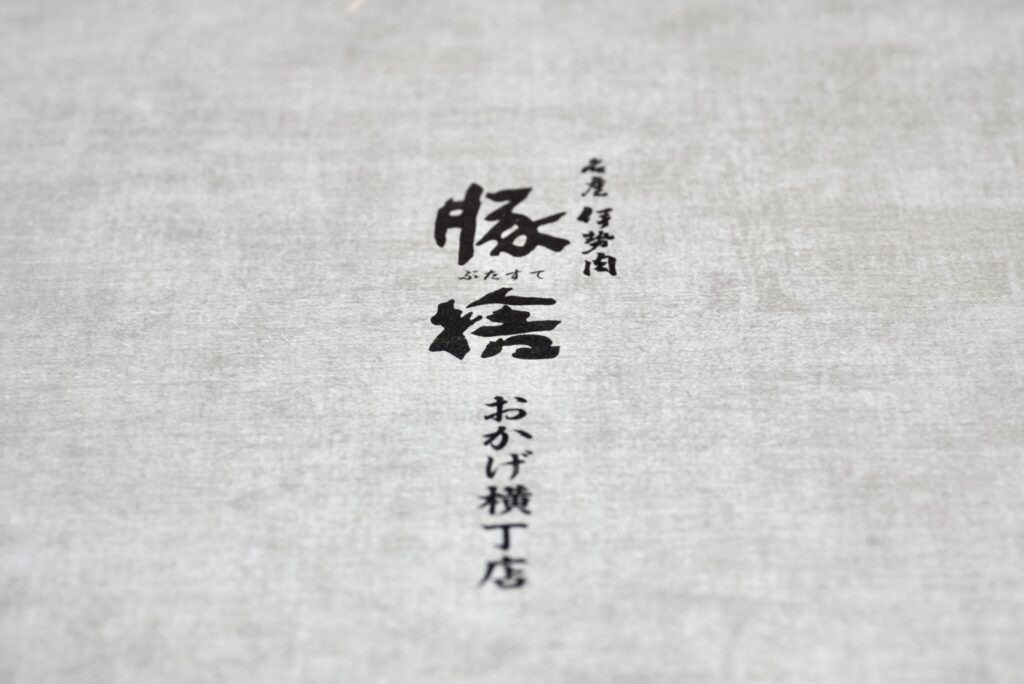 名産伊勢肉
豚捨
ぶたすて
おかげ横丁店